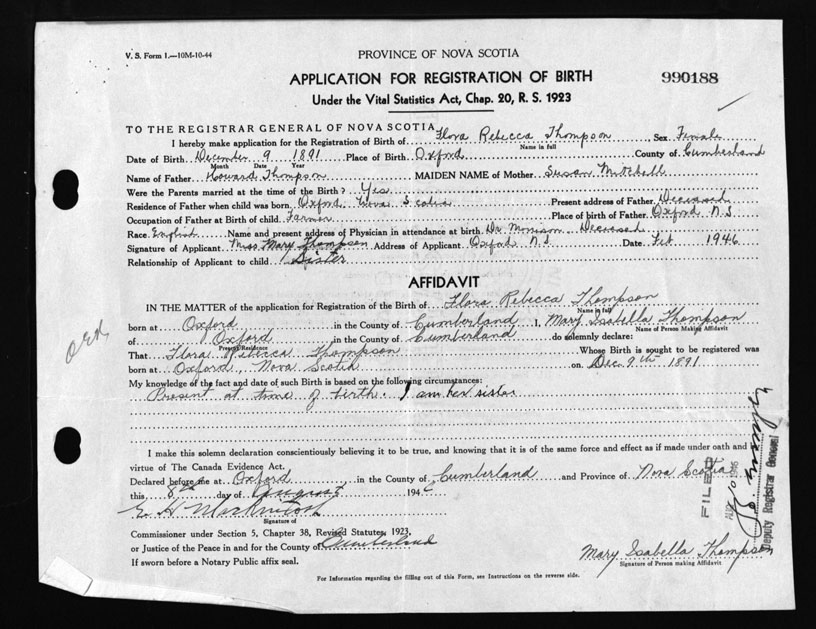 V. S. Form 1.—10M-10-44
PROVINCE OF NOVA SCOTIA
APPLICATION FOR REGISTRATION OF BIRTH
990188
Under the Vital Statistics Act, Chap. 20, R. S. 1923
TO THE REGISTRAR GENERAL OF NOVA SCOTIA
I hereby make application for the Registration of Birth of Flora Rebecca Thompson Sex Female
Name in full
Date of Birth December 9 1891 Place of Birth Oxford County of Cumberland
Month Date Year
Name of Father Howard Thompson MAIDEN NAME of Mother Susan Mitchell
Were the Parents married at the time of the Birth? Yes
Residence of Father when child was born Oxford, Nova Scotia Present address of Father Deceased
Occupation of Father at Birth of child Farmer Place of birth of Father Oxford N.S
Race English Name and present address of Physician in attendance at birth Dr Morrison Deceased
Signature of Applicant Miss Mary Thompson Address of Applicant Oxford N.S Date Feb 1946
Relationship of Applicant to child Sister
AFFIDAVIT
IN THE MATTER of the application for Registration of the Birth of Flora Rebecca Thompson
Name in full
born at Oxford in the County of Cumberland I, Mary Isabella Thompson
Name of Person Making Affidavit
of Oxford in the County of Cumberland do solemnly declare:
Present Residence
That Flora Rebecca Thompson Whose Birth is sought to be registered was
born at Oxford, Nova Scotia on Dec 9th 1891
My knowledge of the fact and date of such Birth is based on the following circumstances:
Present at time of birth. I am her sister
I make this solemn declaration conscientiously believing it to be true, and knowing that it is of the same force and effect as if made under oath and by
virtue of The Canada Evidence Act.
Declared before me at Oxford in the County of Cumberland and Province of Nova Scotia
this 8th day of August 194
Signature of
Commissioner under Section 5, Chapter 38, Revised Statutes, 1923,
or Justice of the Peace in and for the County of Cumberland
If sworn before a Notary Public affix seal.
Mary Isabella Thompson
Signature of Person making Affidavit
For Information regarding the filling out of this Form, see Instructions on the reverse side.
FILED
Deputy Registrar General